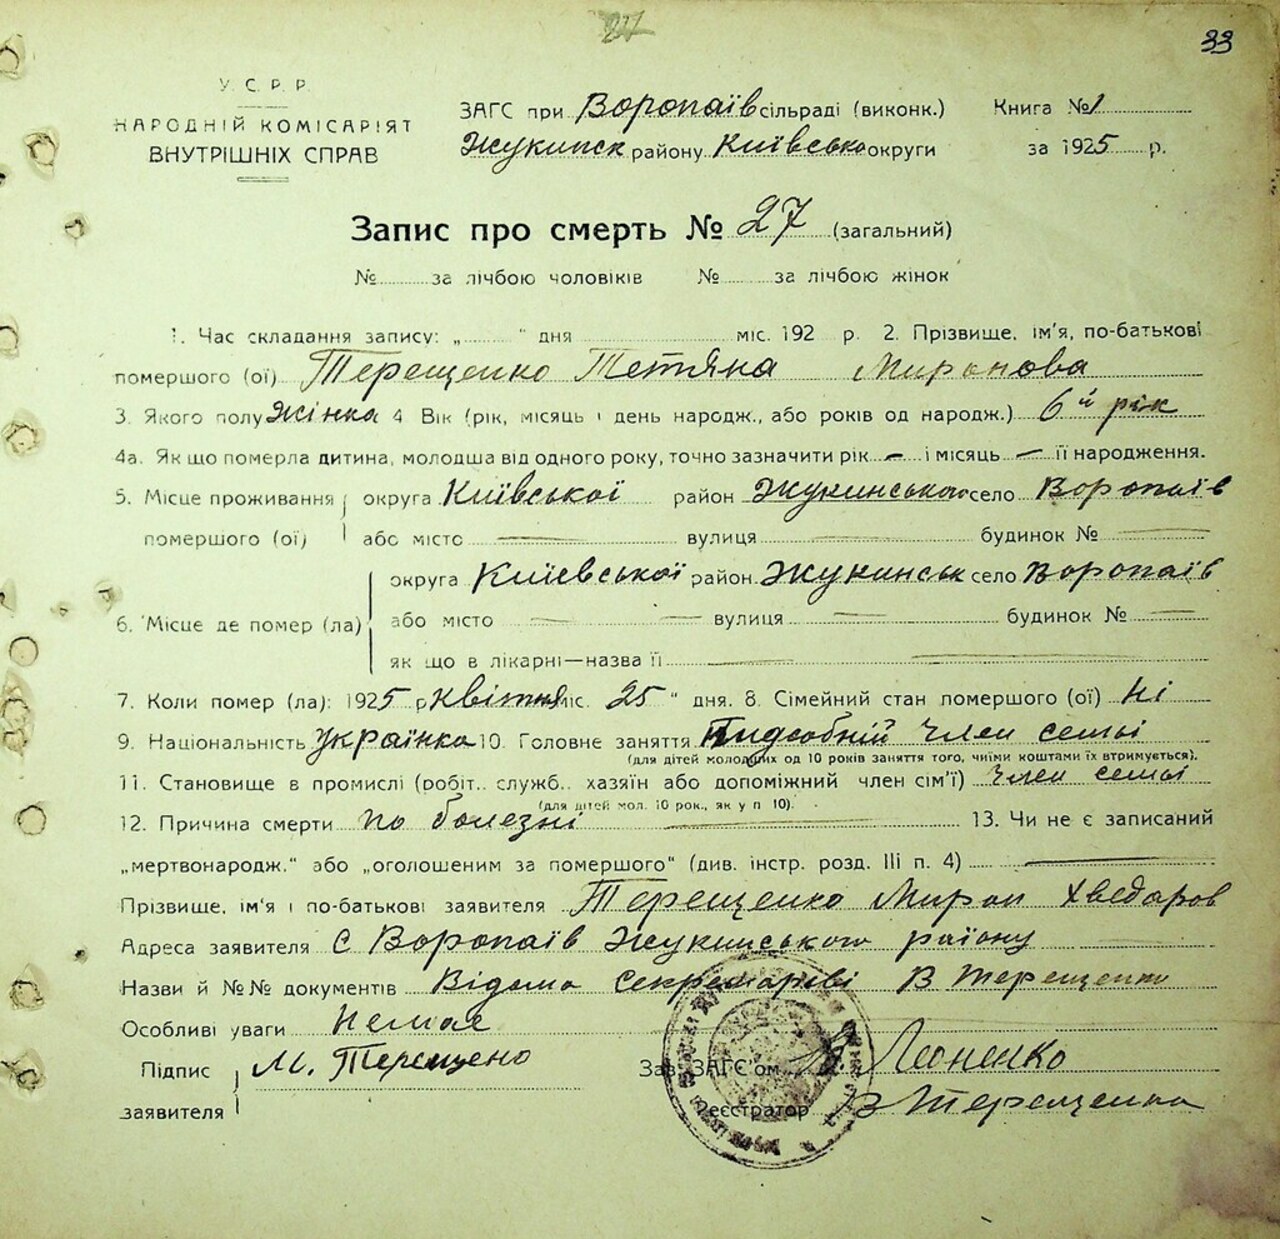 27
33
У. С. Р. Р.
НАРОДНІЙ КОМІСАРІЯТ
ВНУТРІШНІХ СПРАВ
ЗАГС при Воропаїв сільраді (виконк.) Книга № 1
Жукинск району Київсько округи за 1925 р.
Запис про смерть № 27 (загальний)
№ за лічбою чоловіків № за лічбою жінок
1. Час складання запису: „ " дня міс. 192 р. 2. Прізвище, ім'я, по-батькові
помершого (ої) Терещенко Тетяна Миронова
3. Якого полу Жінка 4 Вік (рік, місяць і день народж., або років од народж.) 6й рік
4а. Як що померла дитина, молодша від одного року, точно зазначити рік — і місяць — її народження.
5. Місце проживання округа Київської район Жукинського село Воропаїв
помершого (ої) або місто — вулиця — будинок № —
округа Київської район Жукинськ село Воропаїв
6. Місце де помер (ла) або місто — — вулиця — будинок № —
як що в лікарні—назва її — —
7. Коли помер (ла): 1925 р квітня міс. 25 " дня. 8. Сімейний стан помершого (ої) Ні
9. Національність Українка 10. Головне заняття Підсобній член семьї
(для дітей молодших од 10 років заняття того, чиїми коштами їх втримується).
11. Становище в промислі (робіт.. служб.. хазяїн або допоміжний член сім'ї) член семьї
(для дітей мол. 10 рок., як у п 10).
12. Причина смерти по болезні — 13. Чи не є записаний
„мертвонародж." або „оголошеним за помершого" (див. інстр. розд. ІІІ п. 4) —
Прізвище, ім'я і по-батькові заявителя Терещенко Мирон Хведоров
Адреса заявителя с Воропаїв Жукинського району
Назви й №№ документів Відома секретарєві В Терещенко
Особливі уваги Немає
Підпис М. Терещено Зав. ЗАГС'ом В. Леоненко
заявителя Реєстратор В Терещенко